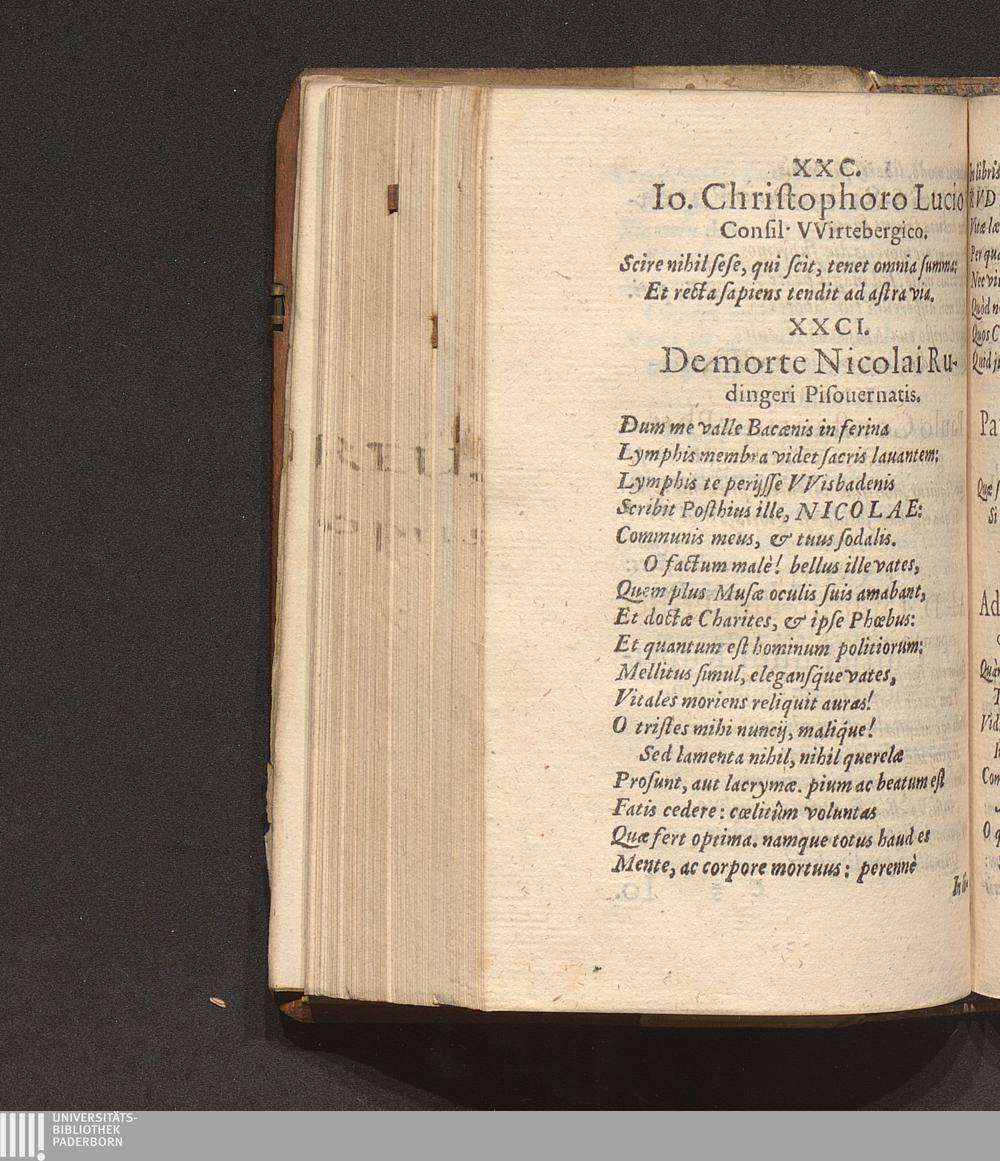 XXC.
Io. Chriſtophoro Lucio
Conſil. VVirtebergico.
Scire nihil ſeſe, qui ſcit, tenet omnia ſumma:
Et recta ſapiens tendit ad aſtra via.
XXCI.
De morte Nicolai Ru-
dingeri Piſouernatis.
Dum me valle Bacænis in ferina
Lymphis membra videt ſacris lauantem:
Lymphis te perijſſe VVisbadenis
Scribit Poſthius ille, NICOLAE:
Communis meus, & tuus ſodalis.
O factum malè! bellus ille vates,
Quem plus Muſæ oculis ſuis amabant,
Et doctæ Charites, & ipſe Phœbus:
Et quantum eſt hominum politiorum:
Mellitus ſimul, eleganſq́ue vates,
Vitales moriens reliquit auras!
O triſtes mihi nuncij, maliq́ue!
Sed lamenta nihil, nihil querelæ
Proſunt, aut lacrymæ. pium ac beatum eſt
Fatis cedere: cœlitûm voluntas
Quæ fert optima. namque totus haud es
Mente, ac corpore mortuus: perennè
In libris
Vitæ læ
Per qua
Nec vir
Quòd n
Quos C
Ad
UNIVERSITÄTS-
BIBLIOTHEK
PADERBORN